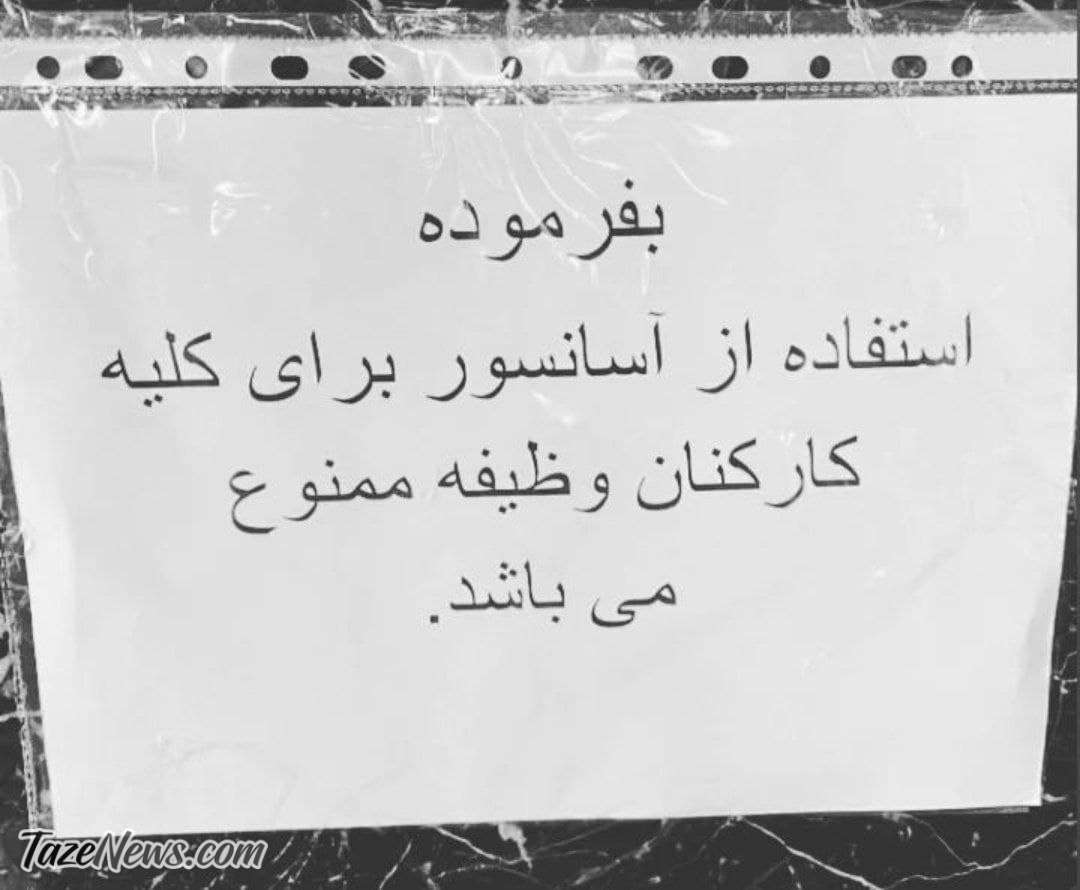 بفرموده
استفاده از آسانسور برای کلیه
کارکنان وظیفه ممنوع
می باشد.
TazeNews.com